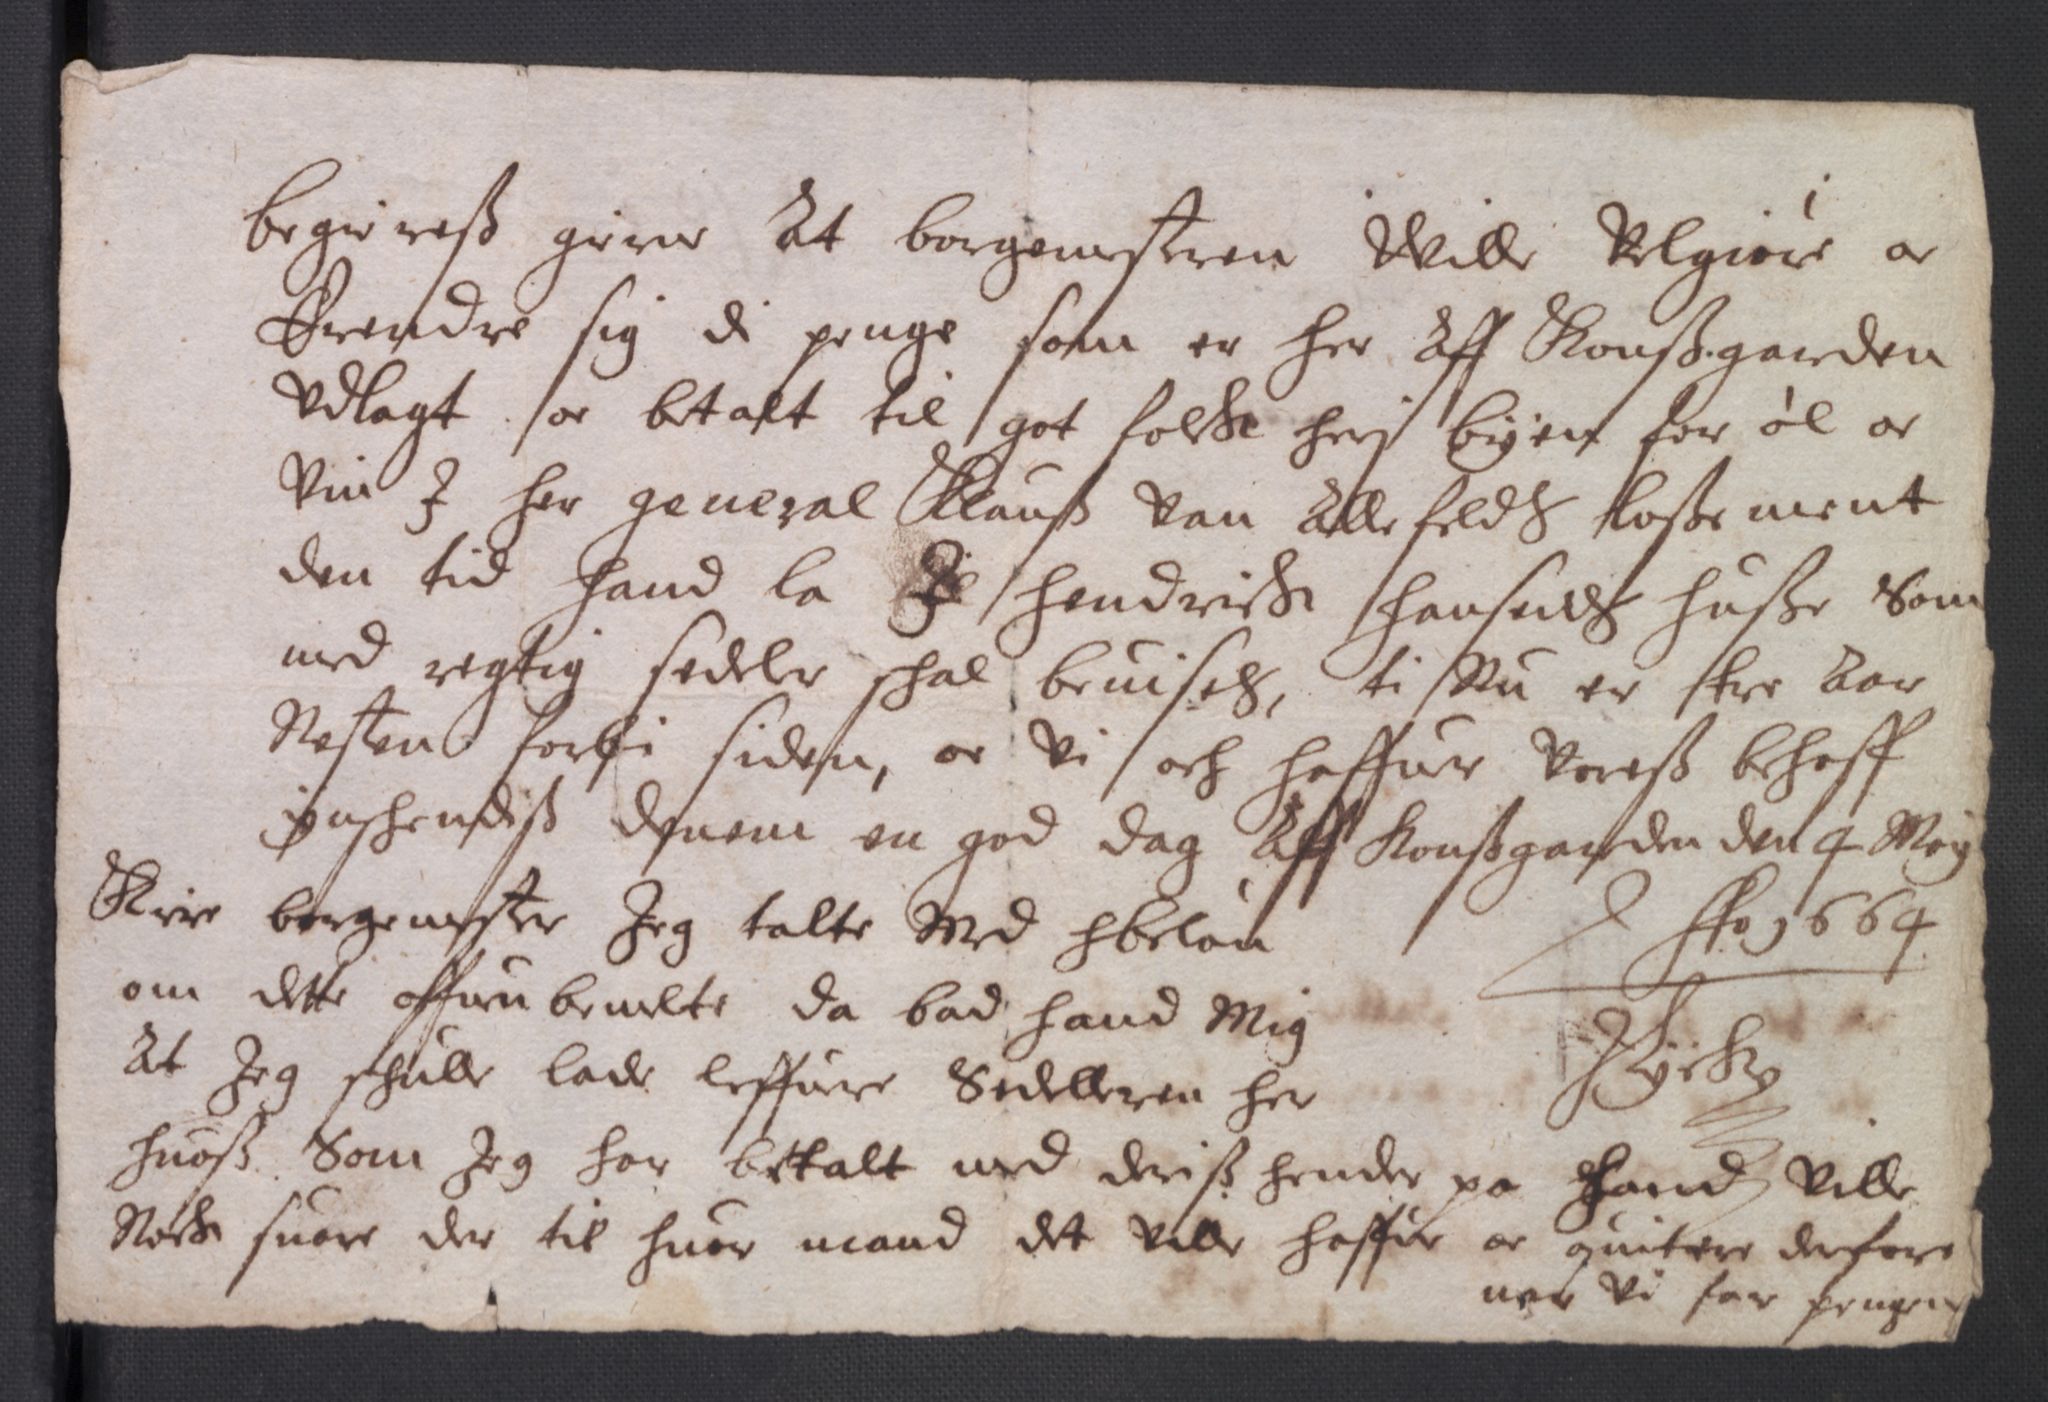 begiereß gierne At borgemesteren Wille Velgiøre oc
Erendre sig di penge som er her Aff Konßgarden
Vdlagt oc betalt til got folck herj byen for øl oc
Vin J her general Klauß Van Allefeldtz lossement
den tid hand la J hendrick hansens husse Som
med regtig sedeler schal beuises, ti Nu er tre Aar
Nesten forbi siden, oc Vi och haffuer Voreß behoff
ynschendiß denem en god dag Aff Konßgarden den 4 Maij
1664
Kiere borgemester Jeg talte Med
om dette offuenbemelte da bad hand Mig
At Jeg schulle lade leffuere Sedelleren her
huoß Som Jeg har bettalt med deriß hender pa hand Ville
Nock suare der til huor mand det Ville haffue oc quitere derfore
naar Vi far pengen